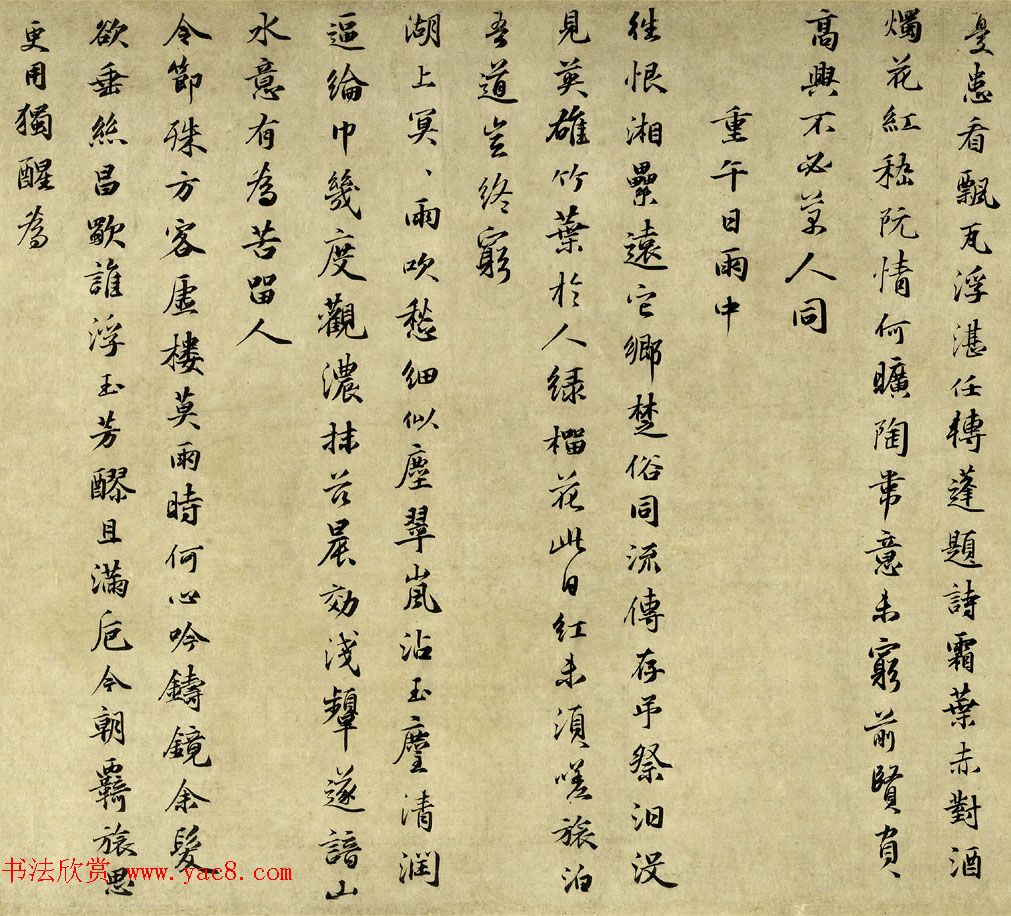 憂患看飄瓦浮湛任轉蓬題詩霜葉赤對酒
燭花紅嵇阮情何曠陶韋意未窮前賢有
高興不必萬人同
重午日雨中
往恨湘纍遠它鄉楚俗同流傳存弔祭汩沒
見英雄竹葉於人綠榴花此日紅未須嗟旅泊
吾道豈終窮
湖上冥、雨吹愁細似塵翠嵐沾玉麈清潤
逼綸巾幾度觀濃抹茲晨効淺顰遂諳山
水意有為苦留人
令節殊方客虛樓莫雨時何心吟鑄鏡余髮
欲垂絲昌歜誰浮玉芳醪且滿卮今朝羈旅思
更用獨醒為
书法欣赏 www.yac8.com